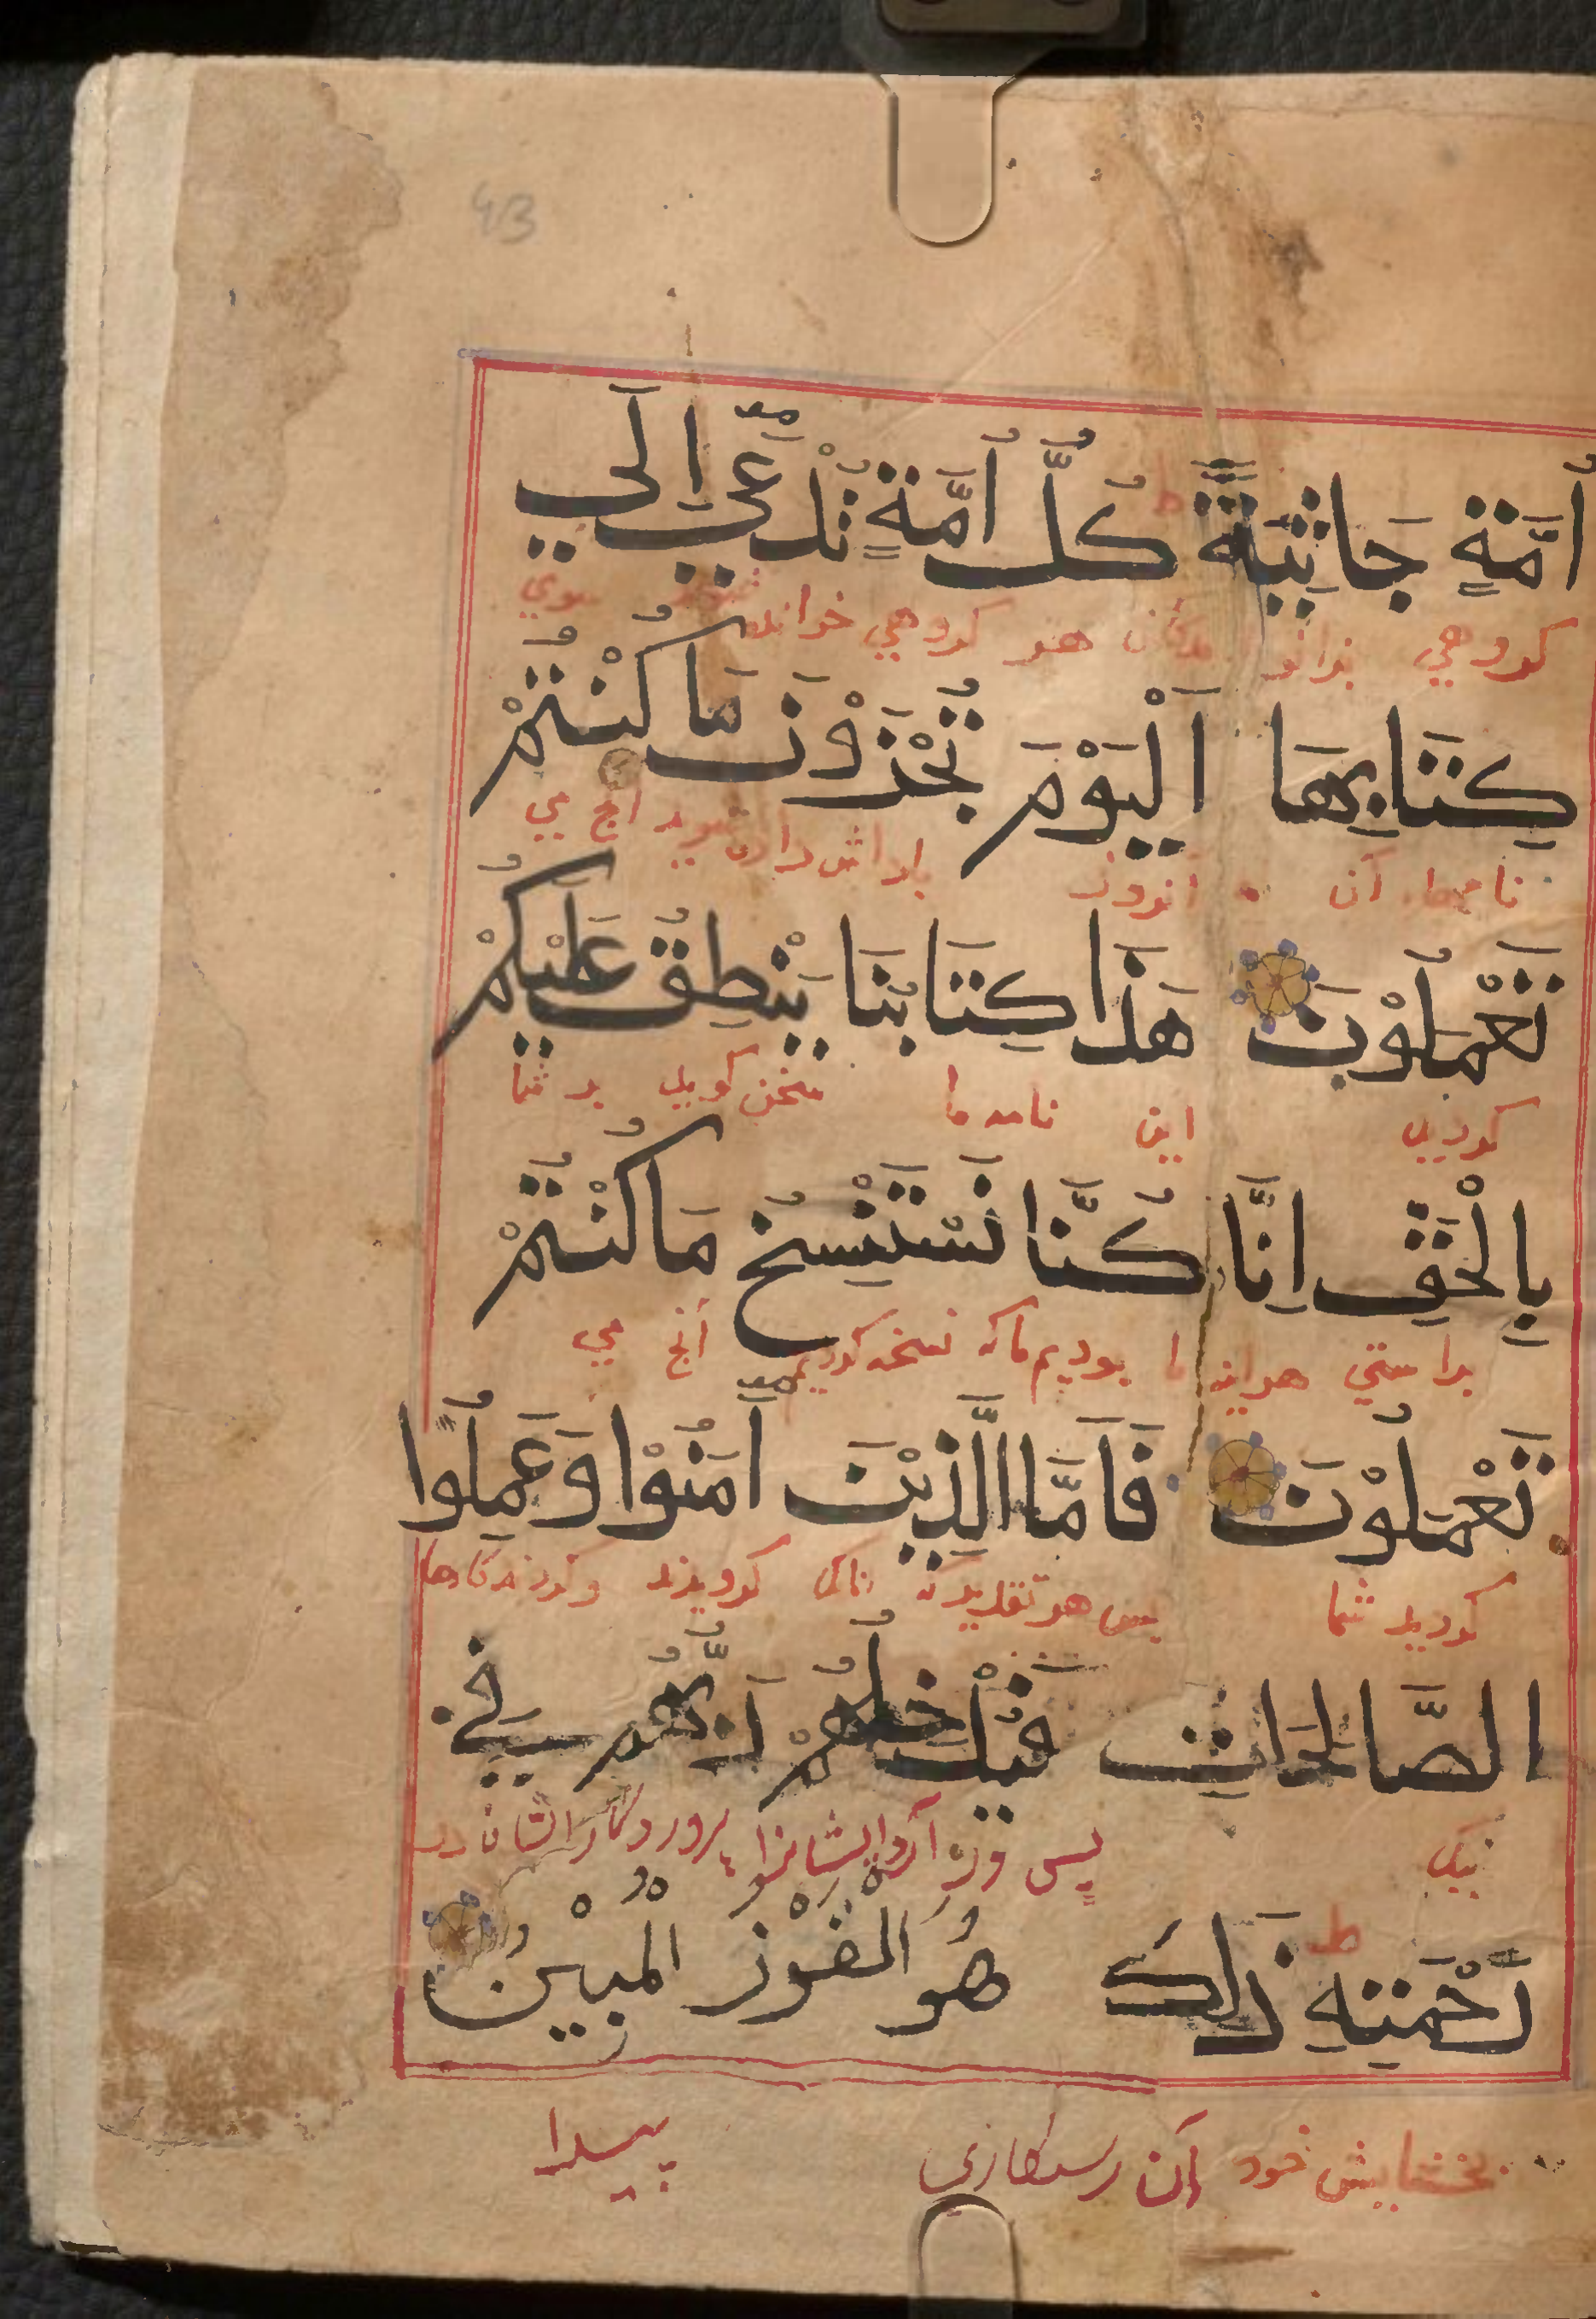 43
أُمَّةٍ جَاثِيَةً ط كُلُّ أُمَّةٍ تُدْعَى إِلَى
كروهي بزانو هر كروهي خوانده شوند سوي
كِتَابِهَا اَلْيَوْمَ تُجْزَوْنَ مَا كُنْتُمْ
نامهاء آن امروز پاداش داده شويد انچ مي
تَعْمَلُوْنَ هَذَا كِتَابُنَا يَنْطِقُ عَلَيْكُمْ
كرديد اين نامه ما سخن كويد بر شما
بِالْحَقِّ اِنَّا كُنَّا نَسْتَنْسِخُ مَا كُنْتُمْ
براستي هراينه ما بوديم ماكه نسخه كرديم انچ مي
تَعْمَلُوْنَ فَاَمَّا الَّذِيْنَ اٰمَنُوْا وَعَمِلُوا
كرديد شما پس هر تقديركه انانك كرويدند وكردند كارها
الصَّالِحَاتِ فَيُدْخِلُهُمْ رَبُّهُمْ فِي
نيك پس در آرد ايشانرا پروردكار ايشان در
رَحْمَتِهِ ط ذَلِكَ هُوَ الْفَوْزُ الْمُبِيْنُ
بخشايش خود آن رستكاري پيدا